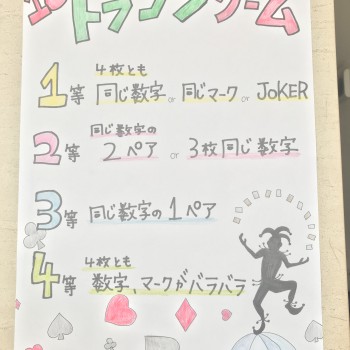 トランプゲーム
1等 4枚とも
同じ数字 or 同じマーク or JoKER
2等 同じ数字の
2ペア or 3枚同じ数字
3等 同じ数字の1ペア
4等 4枚とも
数字、マークがバラバラ